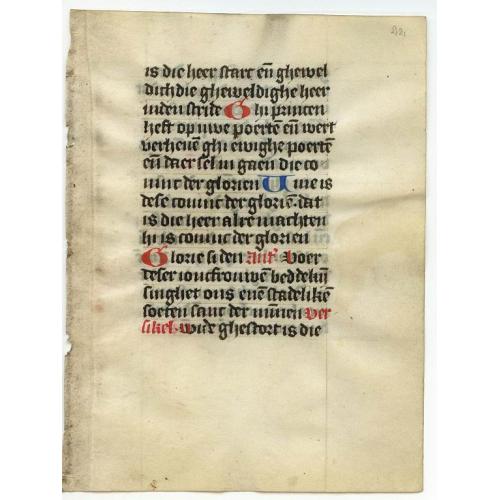 is die heer starc en̄ ghewel
dich die gheweldighe heer
inden stride Ghi princen
heft op uwe poertē en̄ wert
verheuē ghi ewighe poertē
en̄ daer sel in gaen die co
ninc der glorien Wie is
dese coninc der gloriē dat
is die heer alre machten
hi is coninc der glorien
Glorie si den Ant' Voer
deser ioncfrouwē beddekij
singhet ons enē stadelikē
soeten sanc der mīnen ver
sikel wide ghestort is die